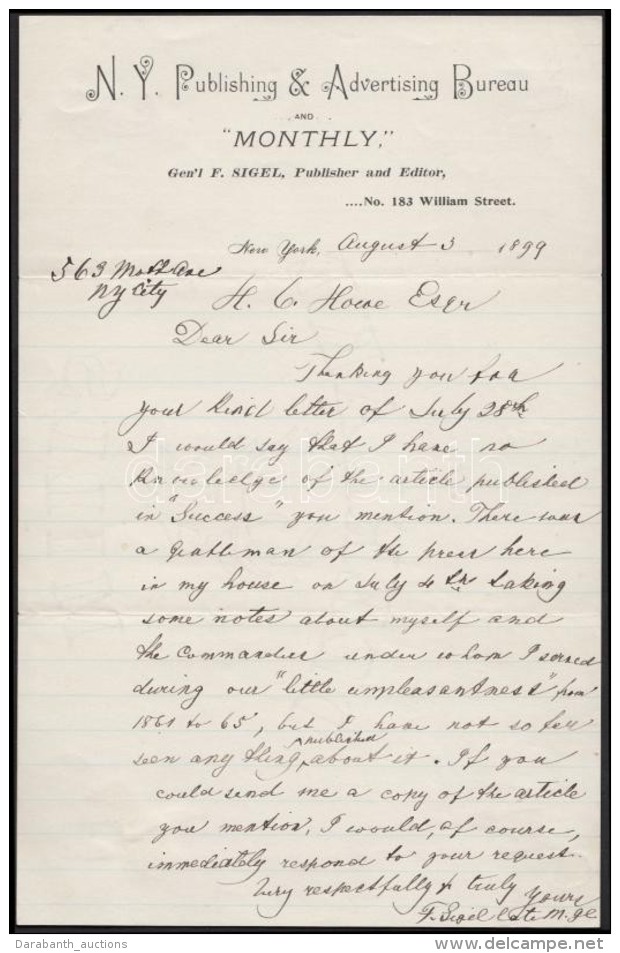 N. Y. Publishing & Advertising Bureau
AND
"MONTHLY,"
Gen'l F. SIGEL, Publisher and Editor,
....No. 183 William Street.
New York, August 3 1899
563 Mott Ave
NY City
H. C. Howe Esqr
Dear Sir
Thanking you for
your kind letter of July 28th
I would say that I have no
knowledge of the article published
in "Success" you mention. There was
a gentleman of the press here
in my house on July 4th taking
some notes about myself and
the commander under whom I served
during our "little unpleasantness" from
1861 to 65, but I have not so far
seen any thing published about it. If you
could send me a copy of the article
you mention, I would, of course,
immediately respond to your request.
Very respectfully & truly yours
F. Sigel late M. G
darabanth
Darabanth_auctions
delcampe.net